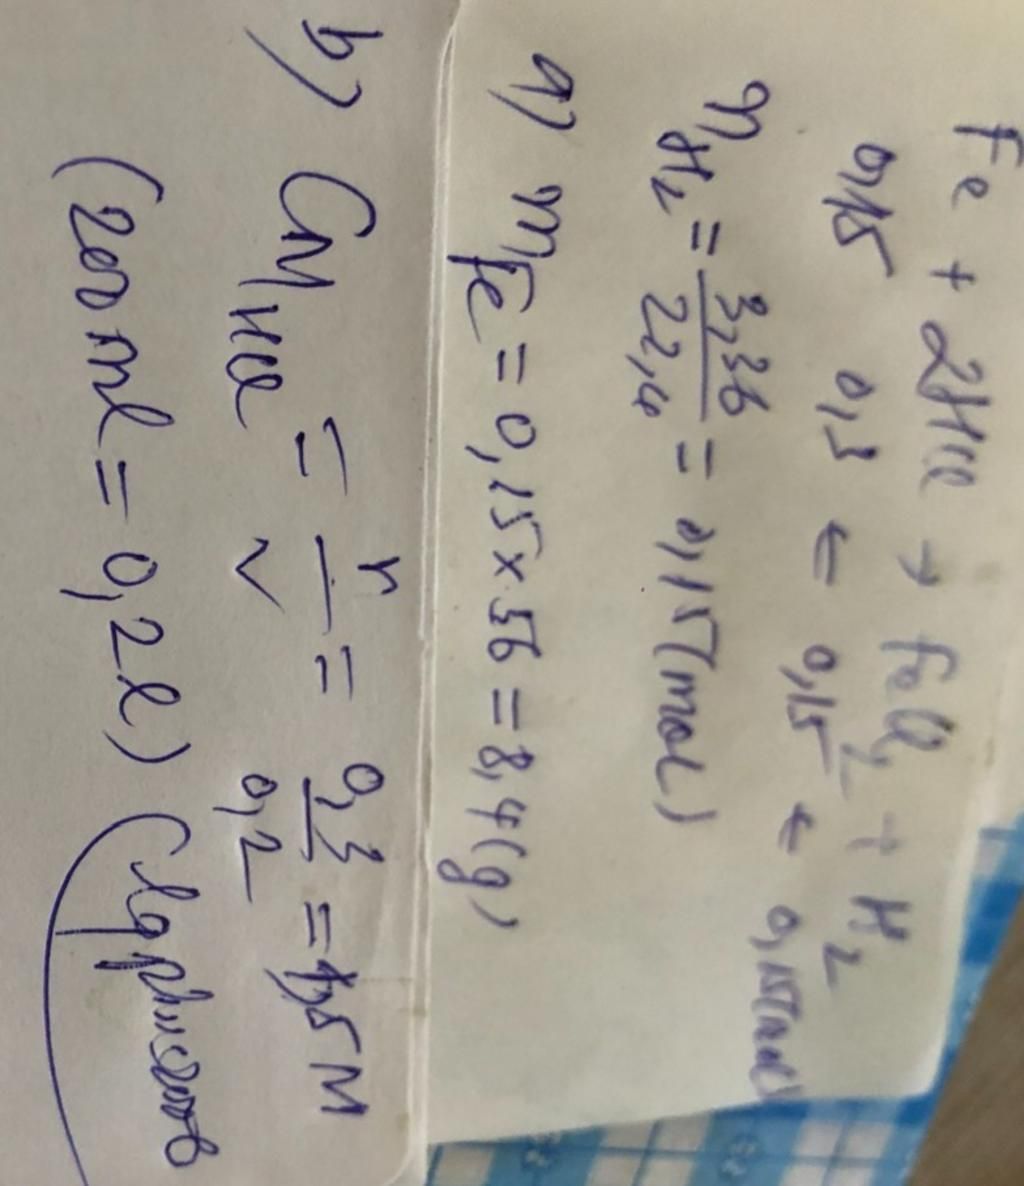 Fe + 2HCl → FeCl₂ + H₂
0,15 0,3 ← 0,15 ← 0,15(mol)
n H₂ = 3,36/22,4 = 0,15(mol)
a) m Fe = 0,15 x 56 = 8,4(g)
b) CM HCl = n/V = 0,3/0,2 = 1,5M
(200ml = 0,2l)